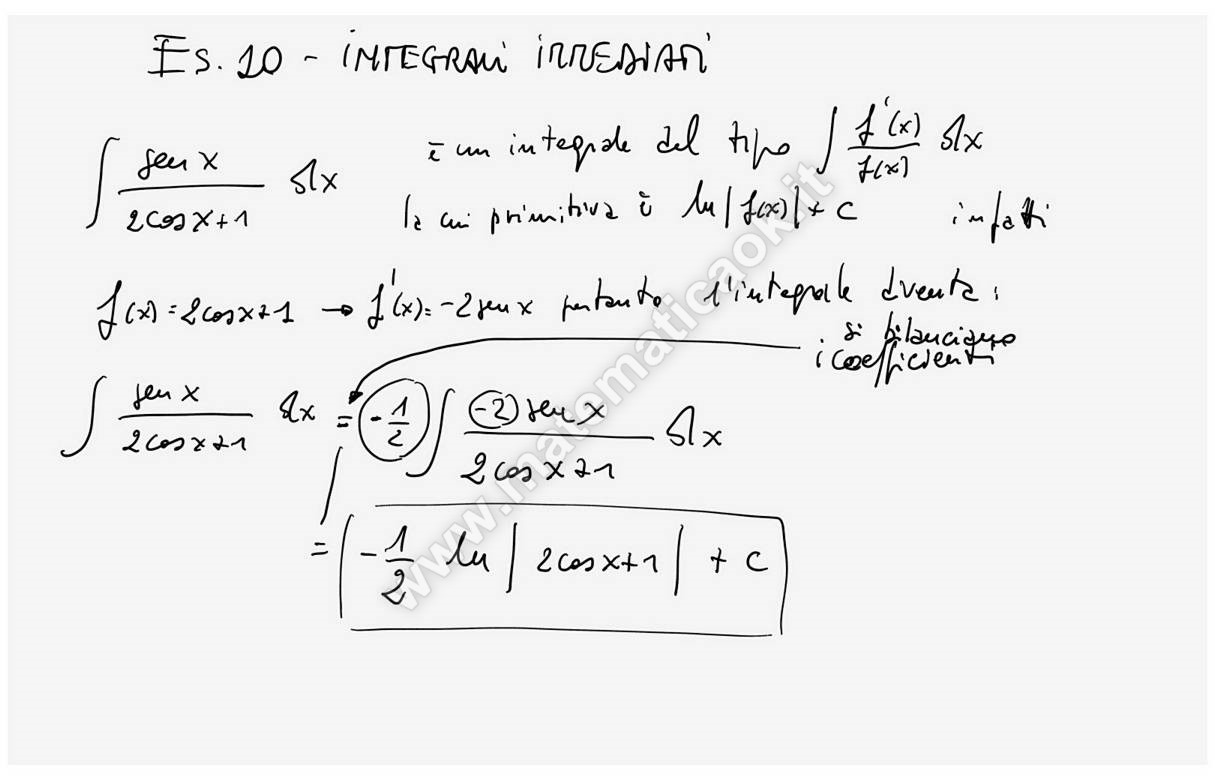 Es. 10 - INTEGRALI IMMEDIATI
∫ sen x / (2cosx+1) dx è un integrale del tipo ∫ f'(x)/f(x) dx
la cui primitiva è ln|f(x)| + c infatti
f(x) = 2cosx+1 → f'(x) = -2senx pertanto l'integrale diventa:
si bilanciano
i coefficienti
∫ sen x / (2cosx+1) dx = -1/2 ∫ (-2) sen x / (2cosx+1) dx
= -1/2 ln | 2cosx+1 | + c
www.matematicaok.it